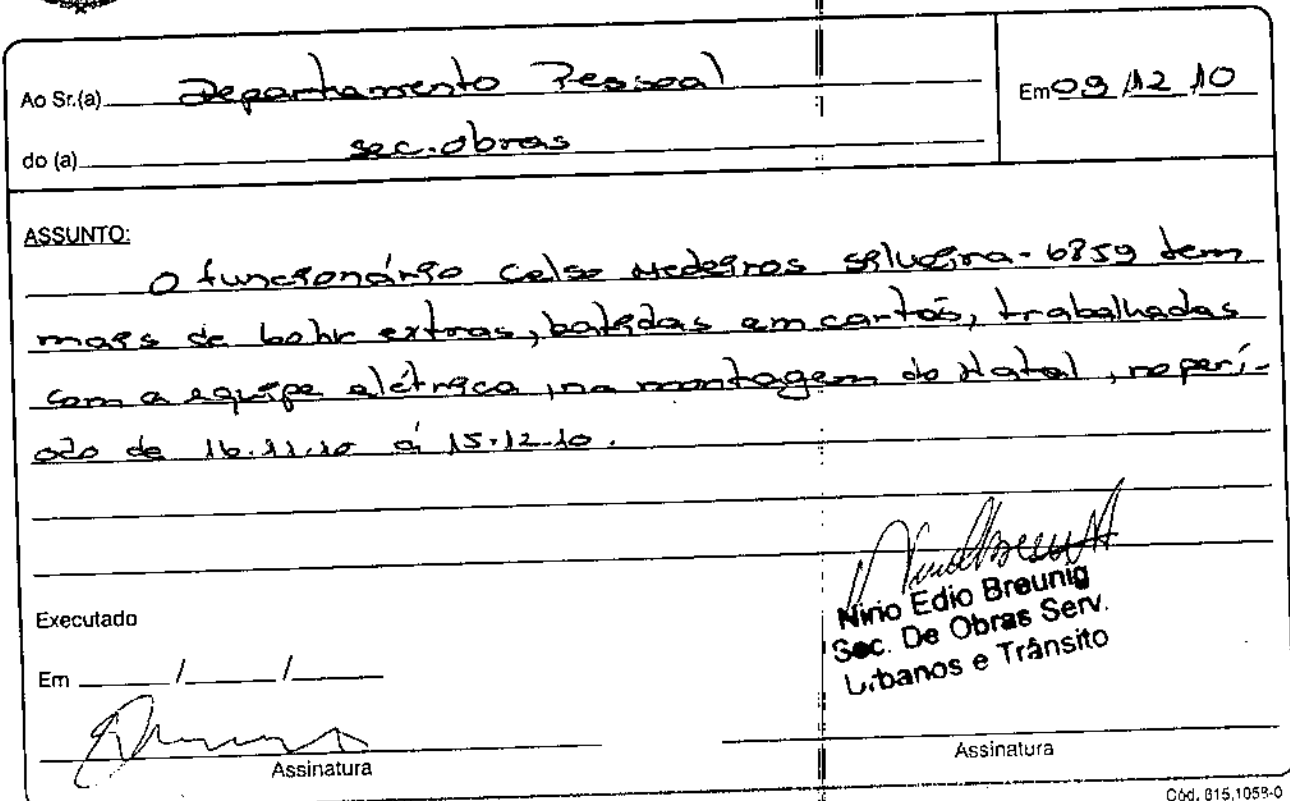 Ao Sr.(a) Departamento Pessoal
Em 09/12/10
do (a) sec. obras
ASSUNTO:
O funcionário Celso Medeiros Silveira - 6859 tem
mais de 60hr extras, batidas em cartão, trabalhadas
com a equipe elétrica, na montagem do Natal, no perí-
odo de 16.11.10 á 15.12.10.
Executado
Em / /
Assinatura
Nirio Edio Breunig
Sec. De Obras Serv.
Urbanos e Trânsito
Assinatura
Cód. 615.1058-0